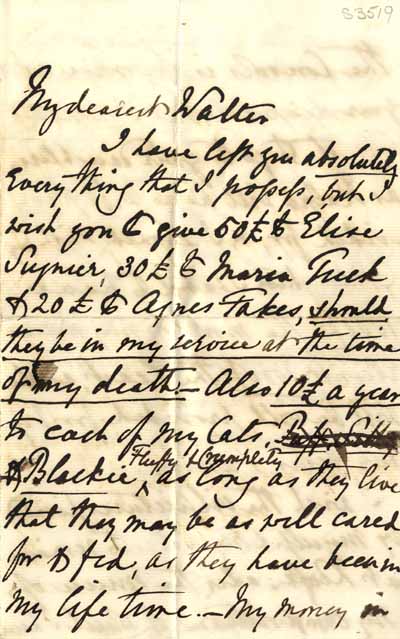 S3519
My dearest Walter
I have left you absolutely
Everything that I possess, but I
wish you to give 50£ to Elise
Sugnier, 30£ to Maria Tuck
& 20£ to Agnes Fakes, should
they be in my service at the time
of my death. - Also 10£ a year
to each of my Cats,
Fluffy & Crumplety
& Blackie, as long as they live
that they may be as well cared
for & fed, as they have been in
my life time. - My money in